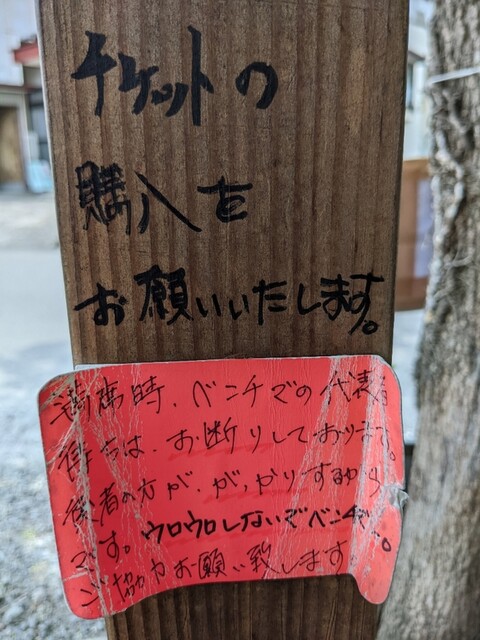 チケットの
購入を
お願いいたします。
満席時、ベンチでの代表
待ちは、お断りしております。
後者の方が、がっかりするから
です。ウロウロしないでベンチで。
ご協力お願い致します